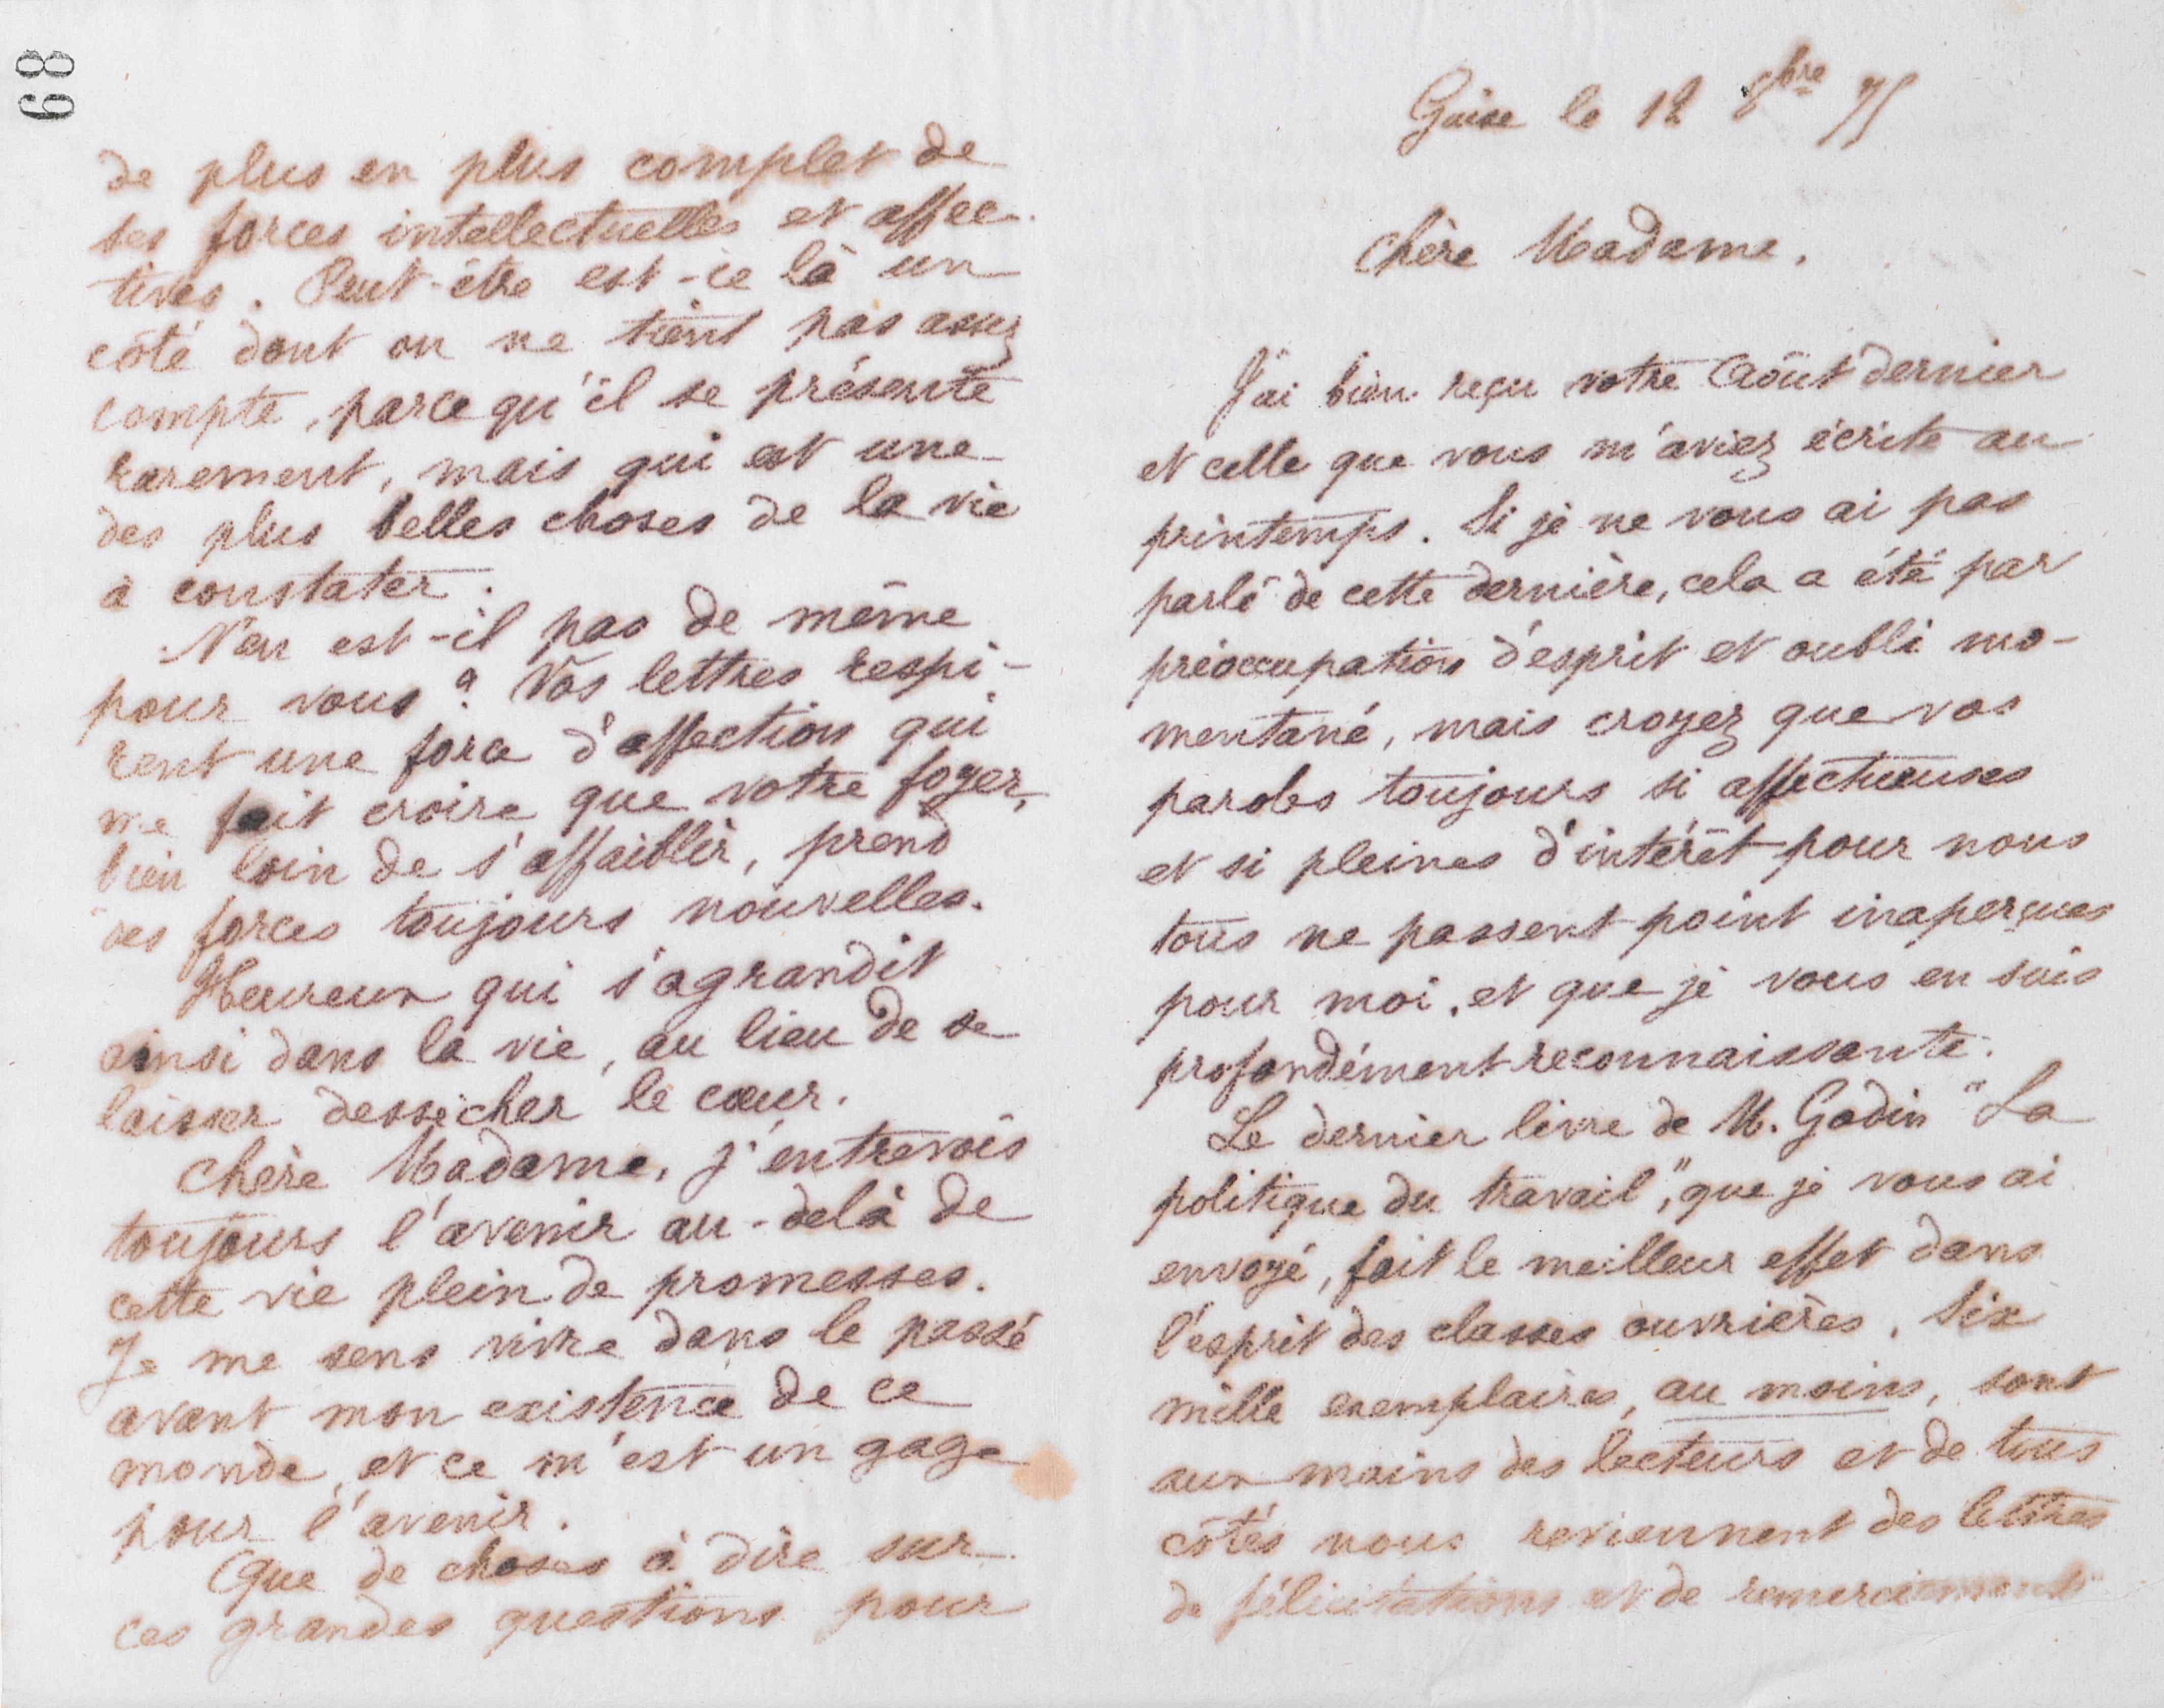 68
de plus en plus complet de
ses forces intellectuelles et affec-
tives. Peut-être est-ce là un
côté dont on ne tient pas assez
compte, parce qu'il se présente
rarement, mais qui est une
des plus belles choses de la vie
à constater.
N'en est-il pas de même
pour vous ? Vos lettres respi-
rent une force d'affection qui
me fait croire que votre foyer,
bien loin de s'affaiblir, prend
des forces toujours nouvelles.
Heureux qui s'agrandit
ainsi dans la vie, au lieu de se
laisser dessécher le cœur.
Chère Madame, j'entrevois
toujours l'avenir au-delà de
cette vie plein de promesses.
Je me sens vivre dans le passé
avant mon existence de ce
monde, et ce m'est un gage
pour l'avenir.
Que de choses à dire sur
ces grandes questions pour
Guise le 12 8bre 75
Chère Madame.
J'ai bien reçu votre Août dernier
et celle que vous m'aviez écrite au
printemps. Si je ne vous ai pas
parlé de cette dernière, cela a été par
préoccupation d'esprit et oubli mo-
mentané, mais croyez que vos
paroles toujours si affectueuses
et si pleines d'intérêt pour nous
tous ne passent point inaperçues
pour moi, et que je vous en suis
profondément reconnaissante.
Le dernier livre de M. Godin "La
politique du travail", que je vous ai
envoyé, fait le meilleur effet dans
l'esprit des classes ouvrières. Six
mille exemplaires, au moins, sont
aux mains des lecteurs et de tous
côtés nous reviennent des lettres
de félicitations et de remerciements